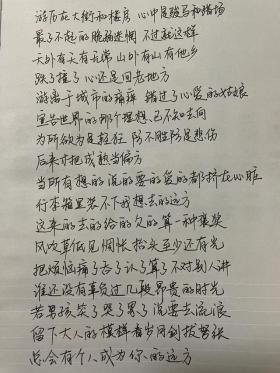 游历在大街和楼房 心中是骏马和猎场
最了不起的脆弱迷惘 不过就这样
天外有天有无常 山外有山有他乡
跌了撞了心还是回老地方
游离于城市的痛痒 错过了心爱的姑娘
宣告世界的那个理想 已不知去向
为所欲为是轻狂 防不胜防是悲伤
后来才把成熟当偏方
当所有想的说的要的爱的都挤在心脏
行李箱里装不下我想去的远方
这来的去的给的欠的算一种褒奖
风吹草低见惆怅抬头至少还有光
把烦恼痛了吞了认了算了不对别人讲
谁还没有辜负过几段昂贵的时光
若男孩笑了哭了累了说要去流浪
留下大人的模样看岁月剑拔弩张
总会有个人成为你的远方